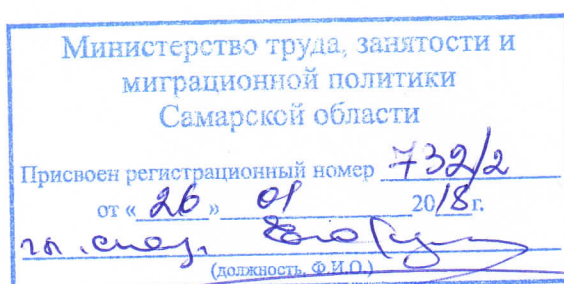 Министерство труда, занятости и
миграционной политики
Самарской области
Присвоен регистрационный номер 732/2
от « 26 » 01 2018 г.
гл. спец.
(должность, Ф.И.О.)